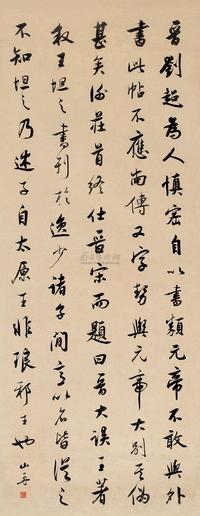 晉劉超為人慎密自以書類元帝不敢與外
書此帖不應尚傳又字勢與元帝大別其偽
甚矣謝莊首終仕晉宋而題曰晉大誤王著
敘王坦之書列於逸少諸子間意以名皆從之
不知坦之乃述子自太原王非琅邪王也 山舟